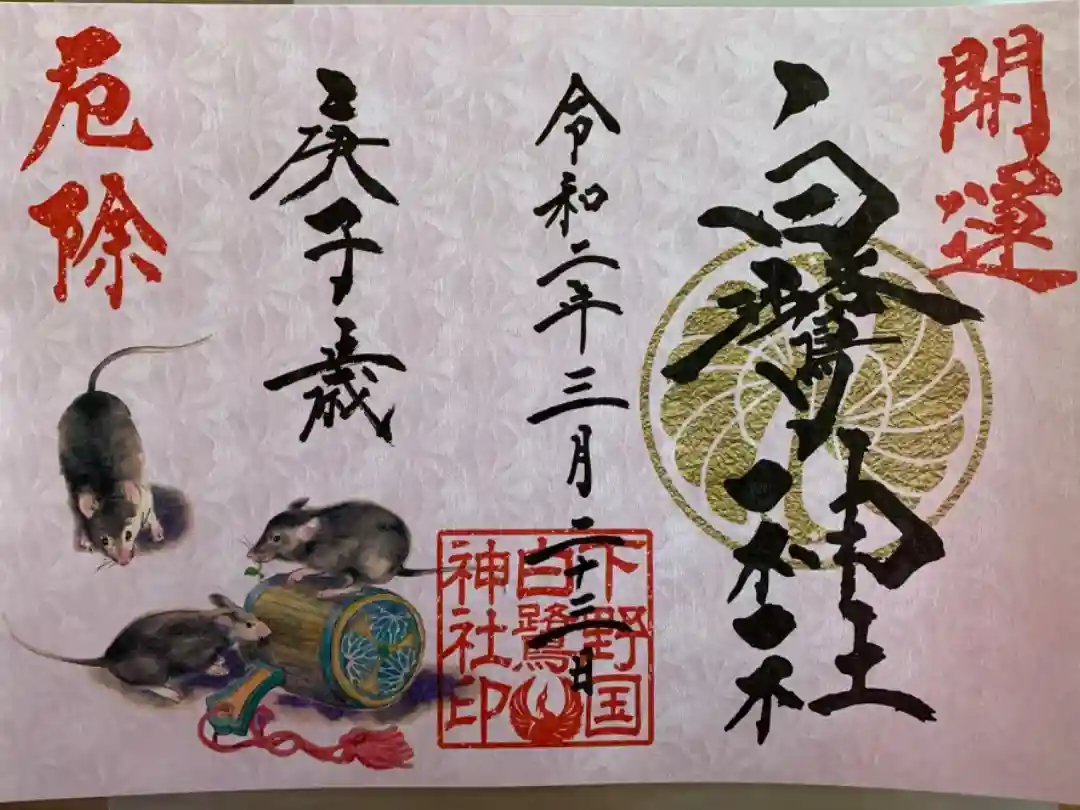 開運
白鷺神社
令和二年三月二十三日
庚子歳
厄除
下野国
白鷺
神社印